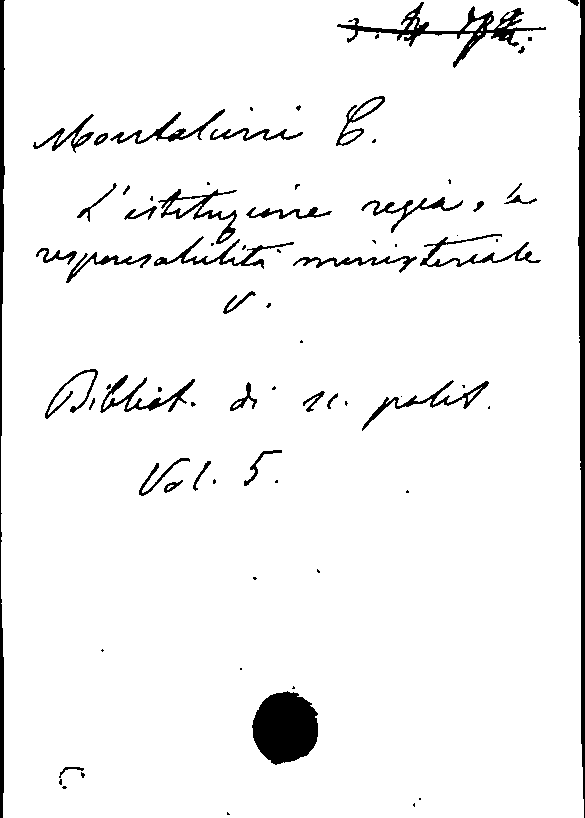 Montalcini C.
L'istituzione regia, la
responsabilità ministeriale
v.
Bibliot. di sc. polit.
Vol. 5.